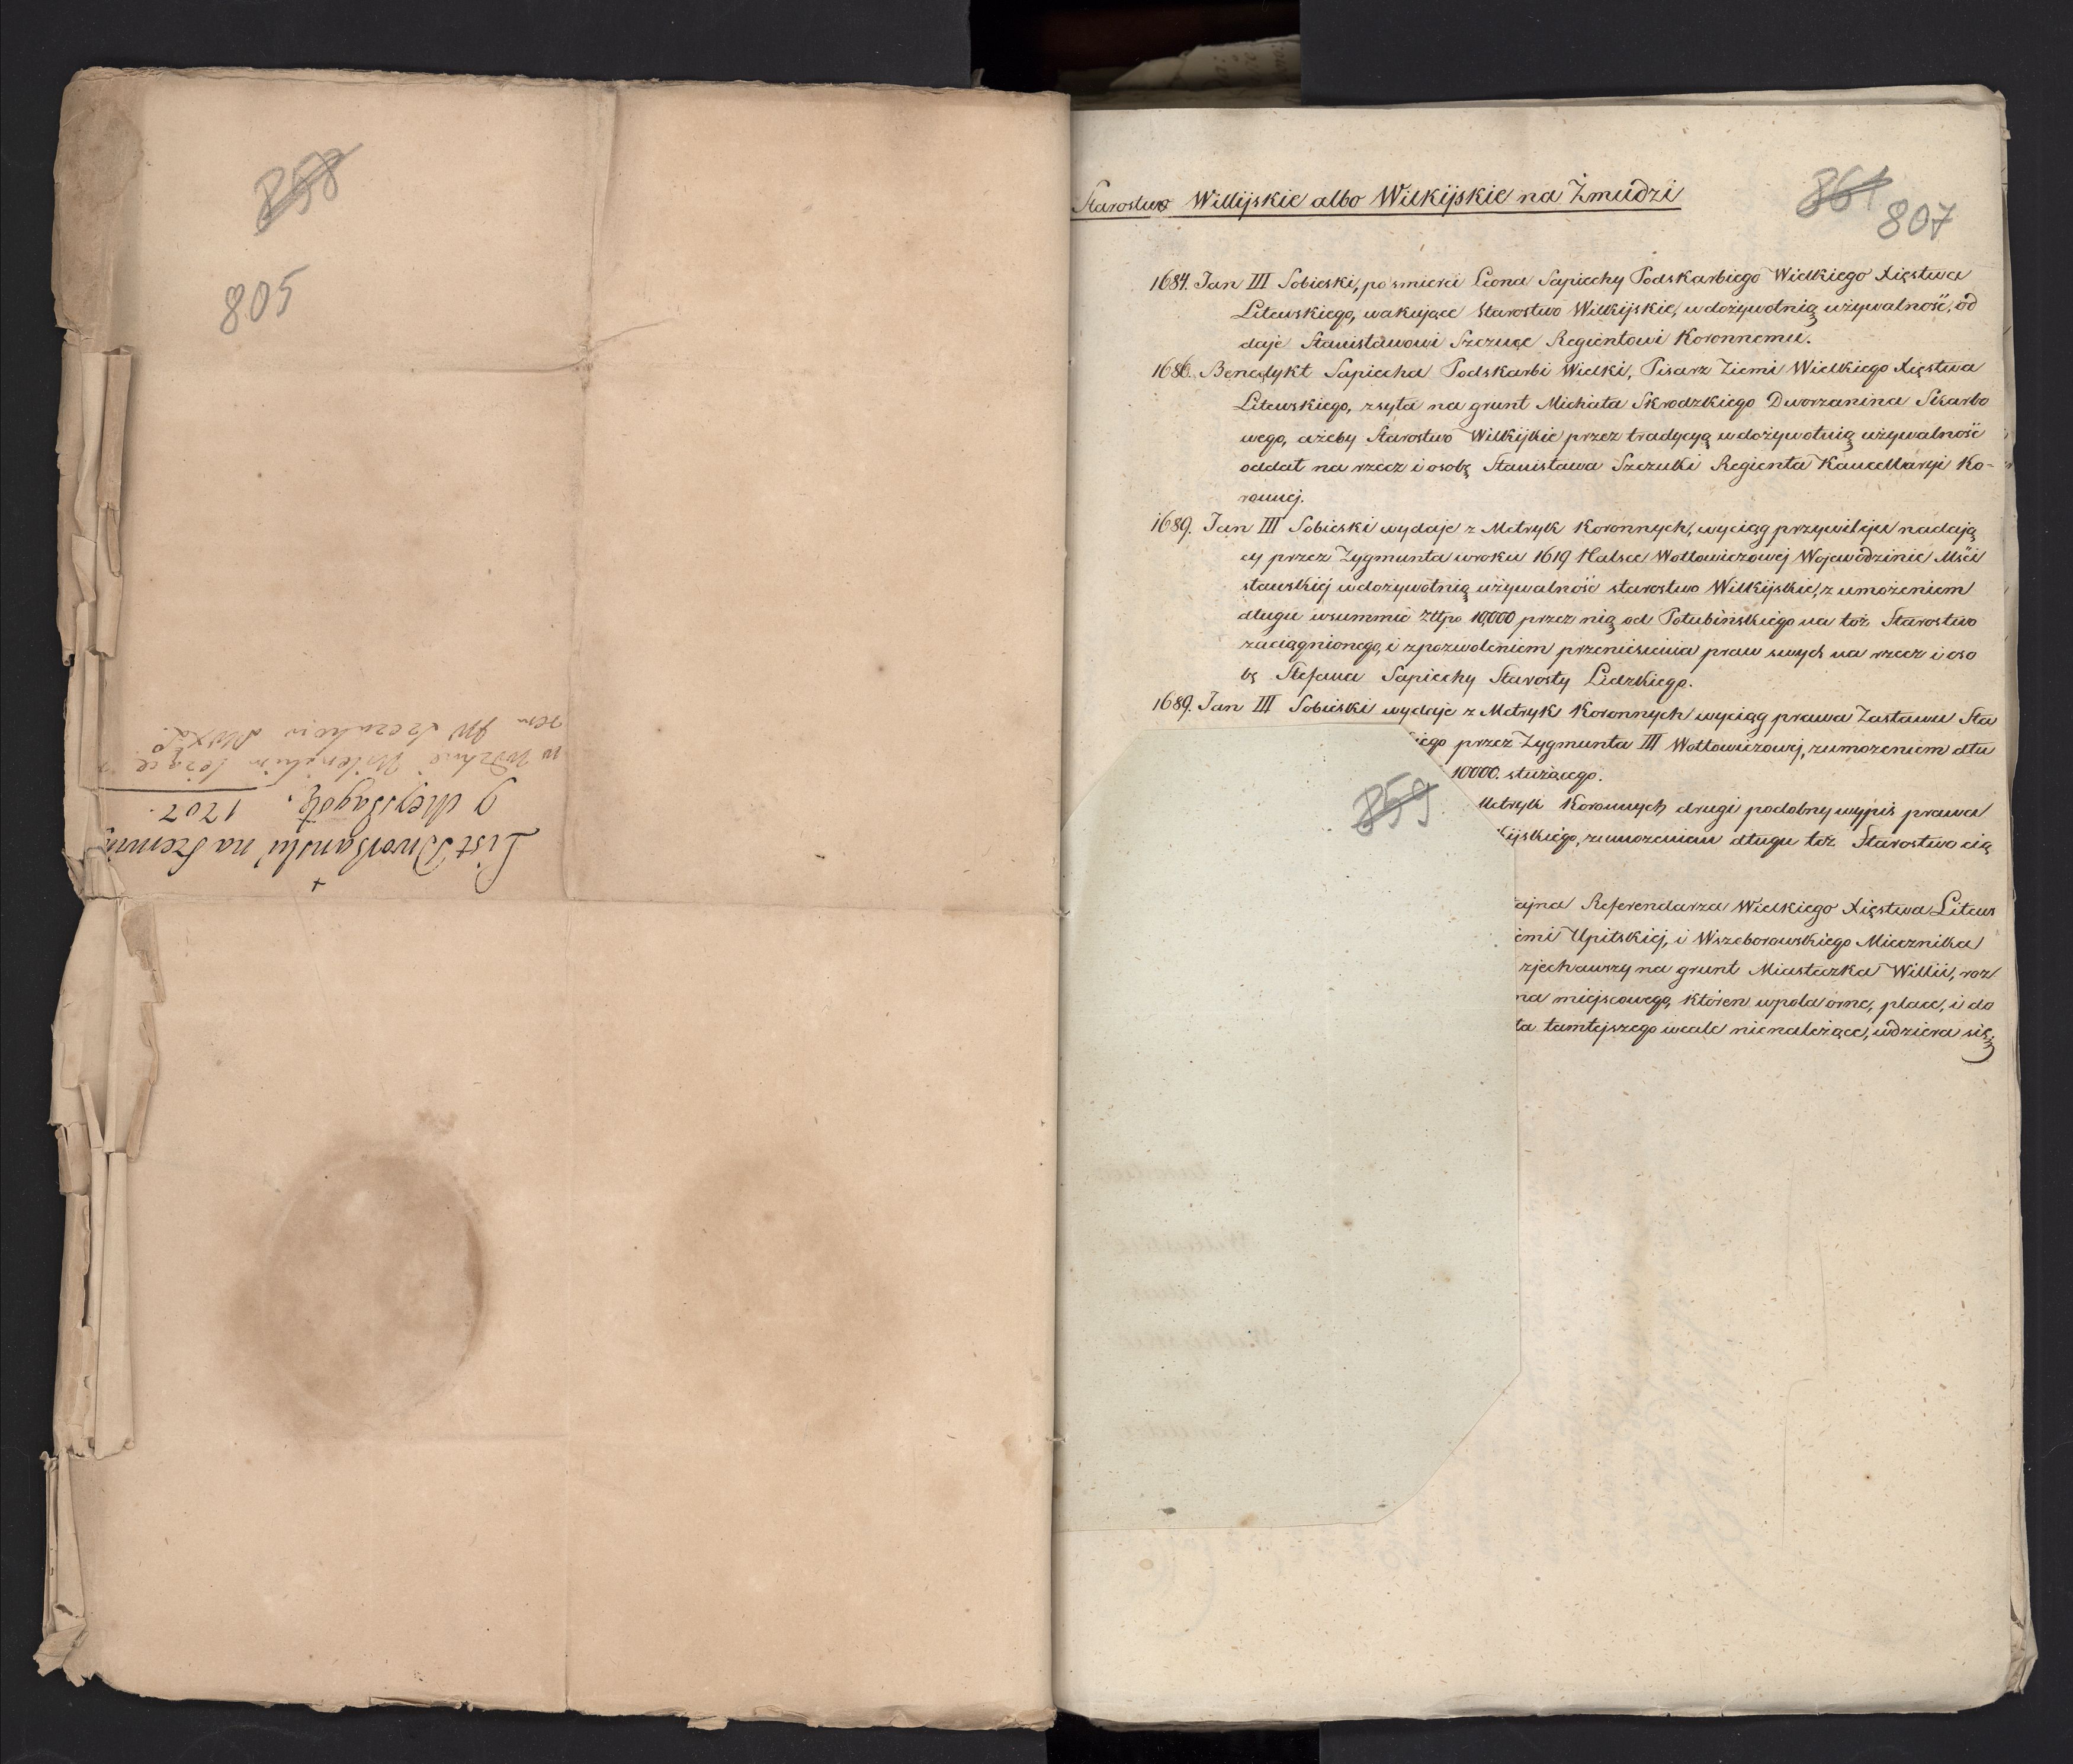 858
805
List Dworzanski na
9 Mejszagołę. 1707.
w Wdztwie Wilenskim leżące
861
807
Starostwo Willijskie albo Wilkijskie na Żmudzi
1684. Jan III Sobieski, po śmierci Leona Sapiechy Podskarbiego Wielkiego Xięstwa
Litewskiego, wakujące Starostwo Wilkijskie, w dożywotnią używalność, od
daje Stanisławowi Szczuce Regientowi Koronnemu.
1686. Benedykt Sapiecha Podskarbi Wielki, Pisarz Ziemi Wielkiego Xięstwa
Litewskiego, zsyła na grunt Michała Skrodzkiego Dworzanina Skarbo
wego, ażeby Starostwo Wilkijkie przez tradycyą w dożywotnią używalność
oddał na rzecz i osobę Stanisława Szczuki Regienta Kancellaryi Ko-
ronnej.
1689. Jan III Sobieski wydaje z Metryk Koronnych, wyciąg przywileju nadają
cy przez Zygmunta w roku 1619 Halsce Wołłowiczowej Wojewodzinie Mści
sławskiej w dożywotnią używalność starostwo Wilkijskie, z umożeniem
długu w summie Złłpo 10,000 przez nią od Połubińskiego na toż Starostwo
zaciągnionego, i z pozwoleniem przeniesienia praw swych na rzecz i oso
bę Stefana Sapiechy Starosty Lidzkiego.
1689. Jan III Sobieski wydaje z Metryk Koronnych wyciąg prawa Zastawu Sta
iego przez Zygmunta III Wołłowiczowej, z umorzeniem dłu
10000. służącego.
859
Metryk Koronnych drugi podobny wypis prawa
kijskiego, z umorzeniem długu toż Starostwo cią
ajna Referendarza Wielkiego Xięstwa Litews
iemi Upitskiej, i Wszeborowskiego Miecznika
zjechawszy na grunt Miasteczka Willii, roz
na miejscowego, któren w pola orne, place, i do
ta tamtejszego wcale nienależące, wdziera się;